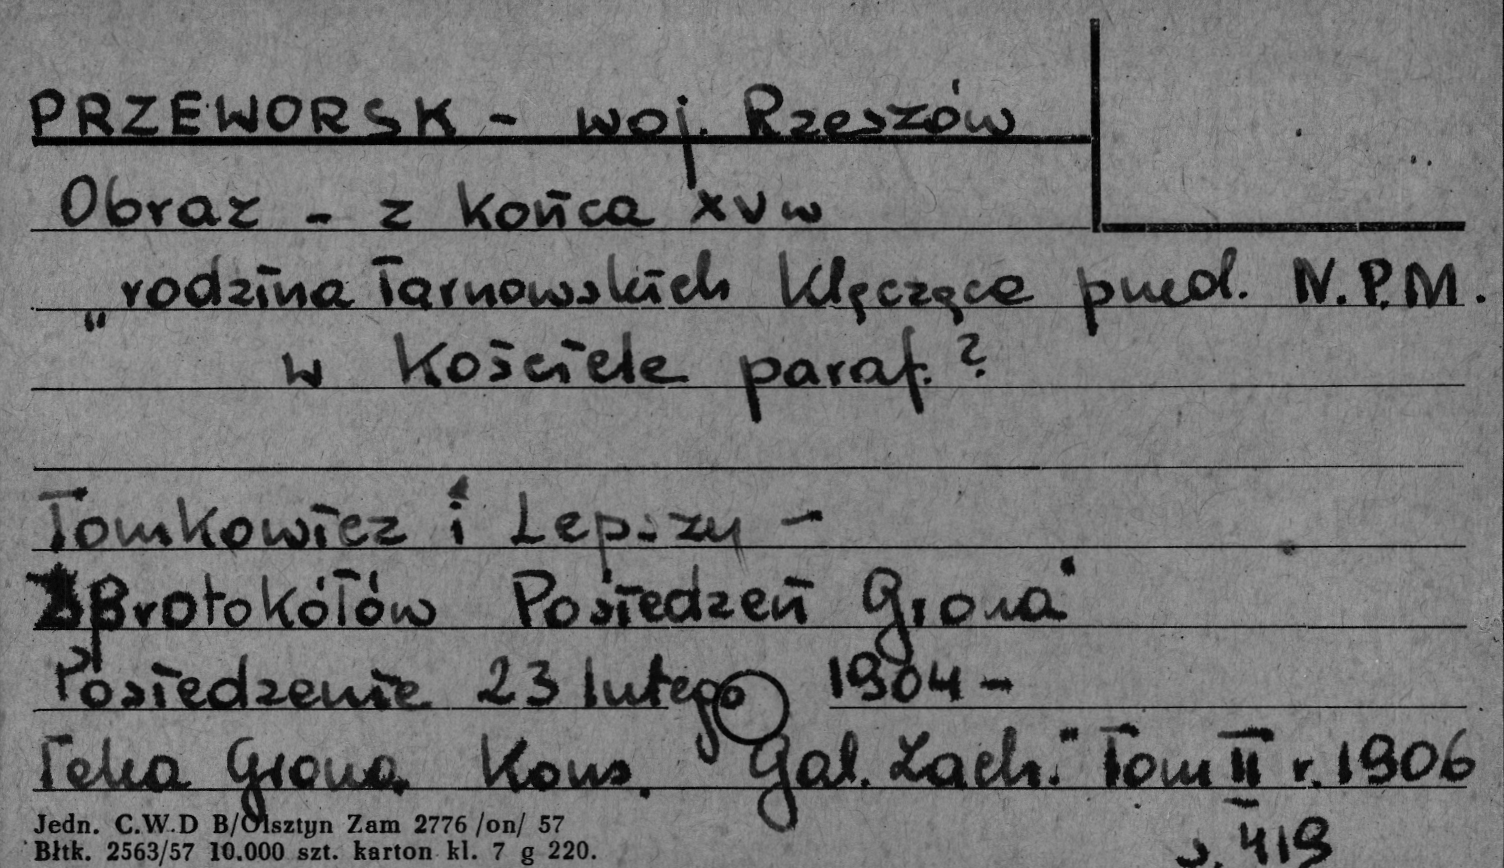 PRZEWORSK - woj. Rzeszów
Obraz - z końca XV w
„rodzina Tarnowskich klęcząca przed. N.P.M.
w kościele paraf. ?
Tomkowicz i Lepszy -
Z Protokółów Posiedzeń Grona"
Posiedzenie 23 lutego 1904 -
Teka Grona Kons. Gal. Zach." Tom II r. 1906
s. 419
Jedn. C.W.D B/Olsztyn Zam 2776 /on/ 57
Błtk. 2563/57 10.000 szt. karton kl. 7 g 220.